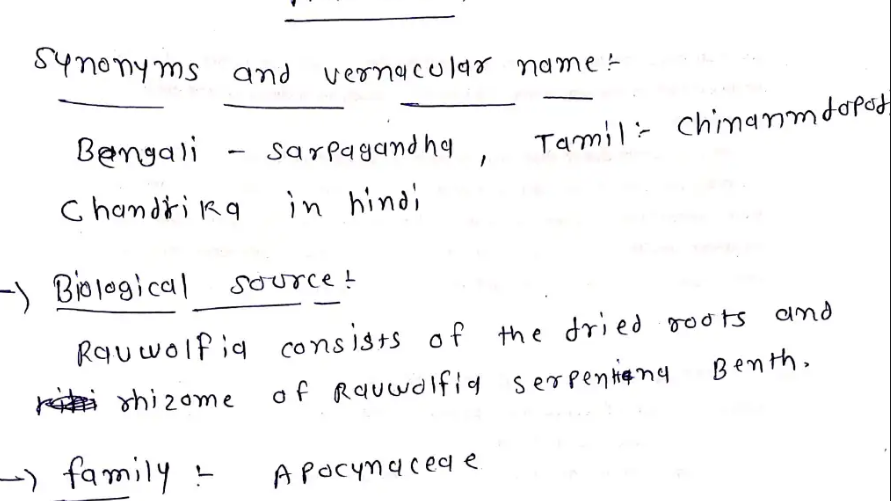 Synonyms and vernacular name :-
Bengali - Sarpagandha, Tamil :- Chinanmdopodi
Chandrika in hindi
-> Biological source :-
Rauwolfia consists of the dried roots and
rhizome of Rauwolfia serpentina Benth.
-> family :- Apocynaceae